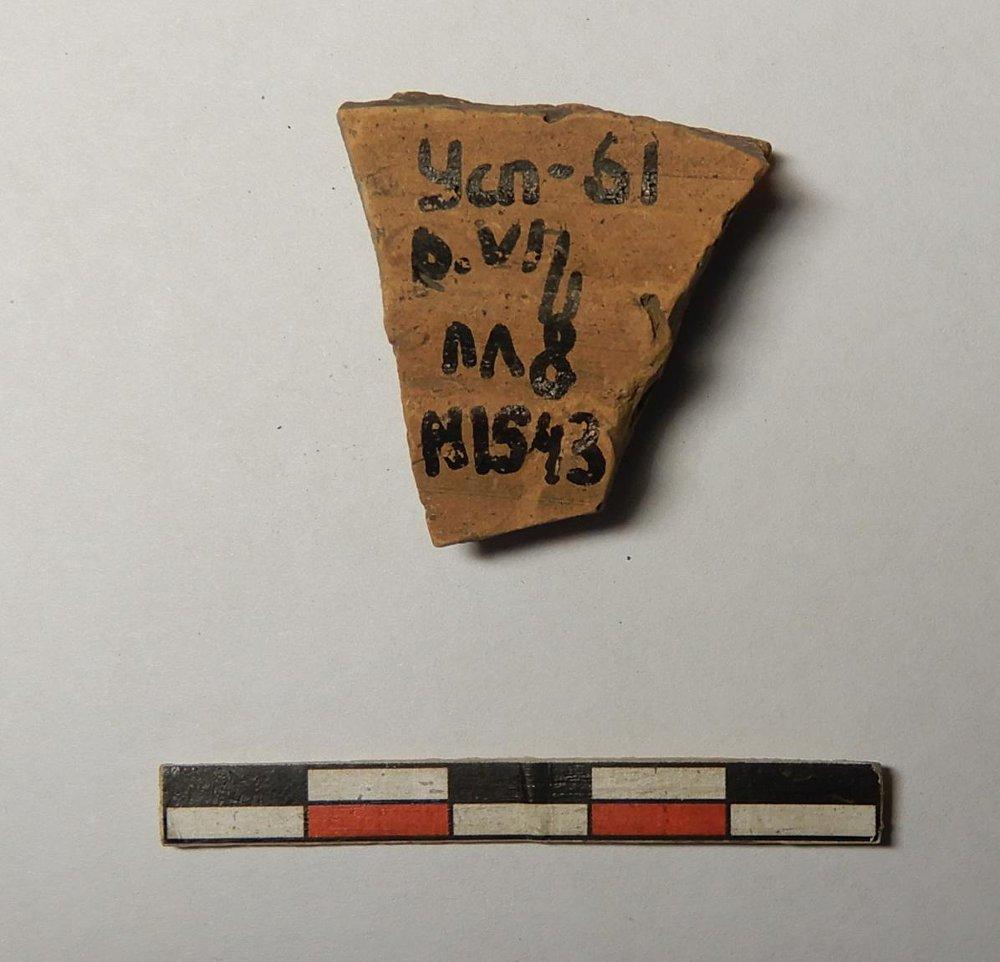 Усп-61
р. VII
пл8
№1543